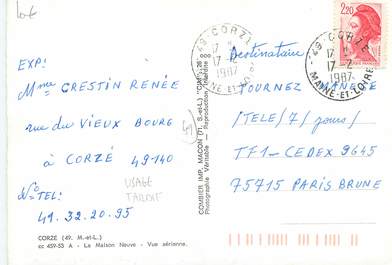 Lot
EXP:
Mme CRESTIN RENÉE
rue du VIEUX BOURG
à CORZÉ 49-140
N° TEL:
41.32.20.95
USAGE
TARDIF
49
CORZE (49. M.-et-L.)
cc 459-53 A - La Maison Neuve - Vue aérienne.
COMBIER IMP. MACON (71. S.-et-L.) "CIM"
Photographie Véritable - Reproduction interdite
49 CORZE
17-2
1987
MAINE-ET-LOIRE
49 CORZE
17-2
1987
MAINE-ET-LOIRE
2,20
Destinataire
TOURNEZ MANEGE
/TELE/7/jours/
TF1-CEDEX 9645
75715 PARIS BRUNE